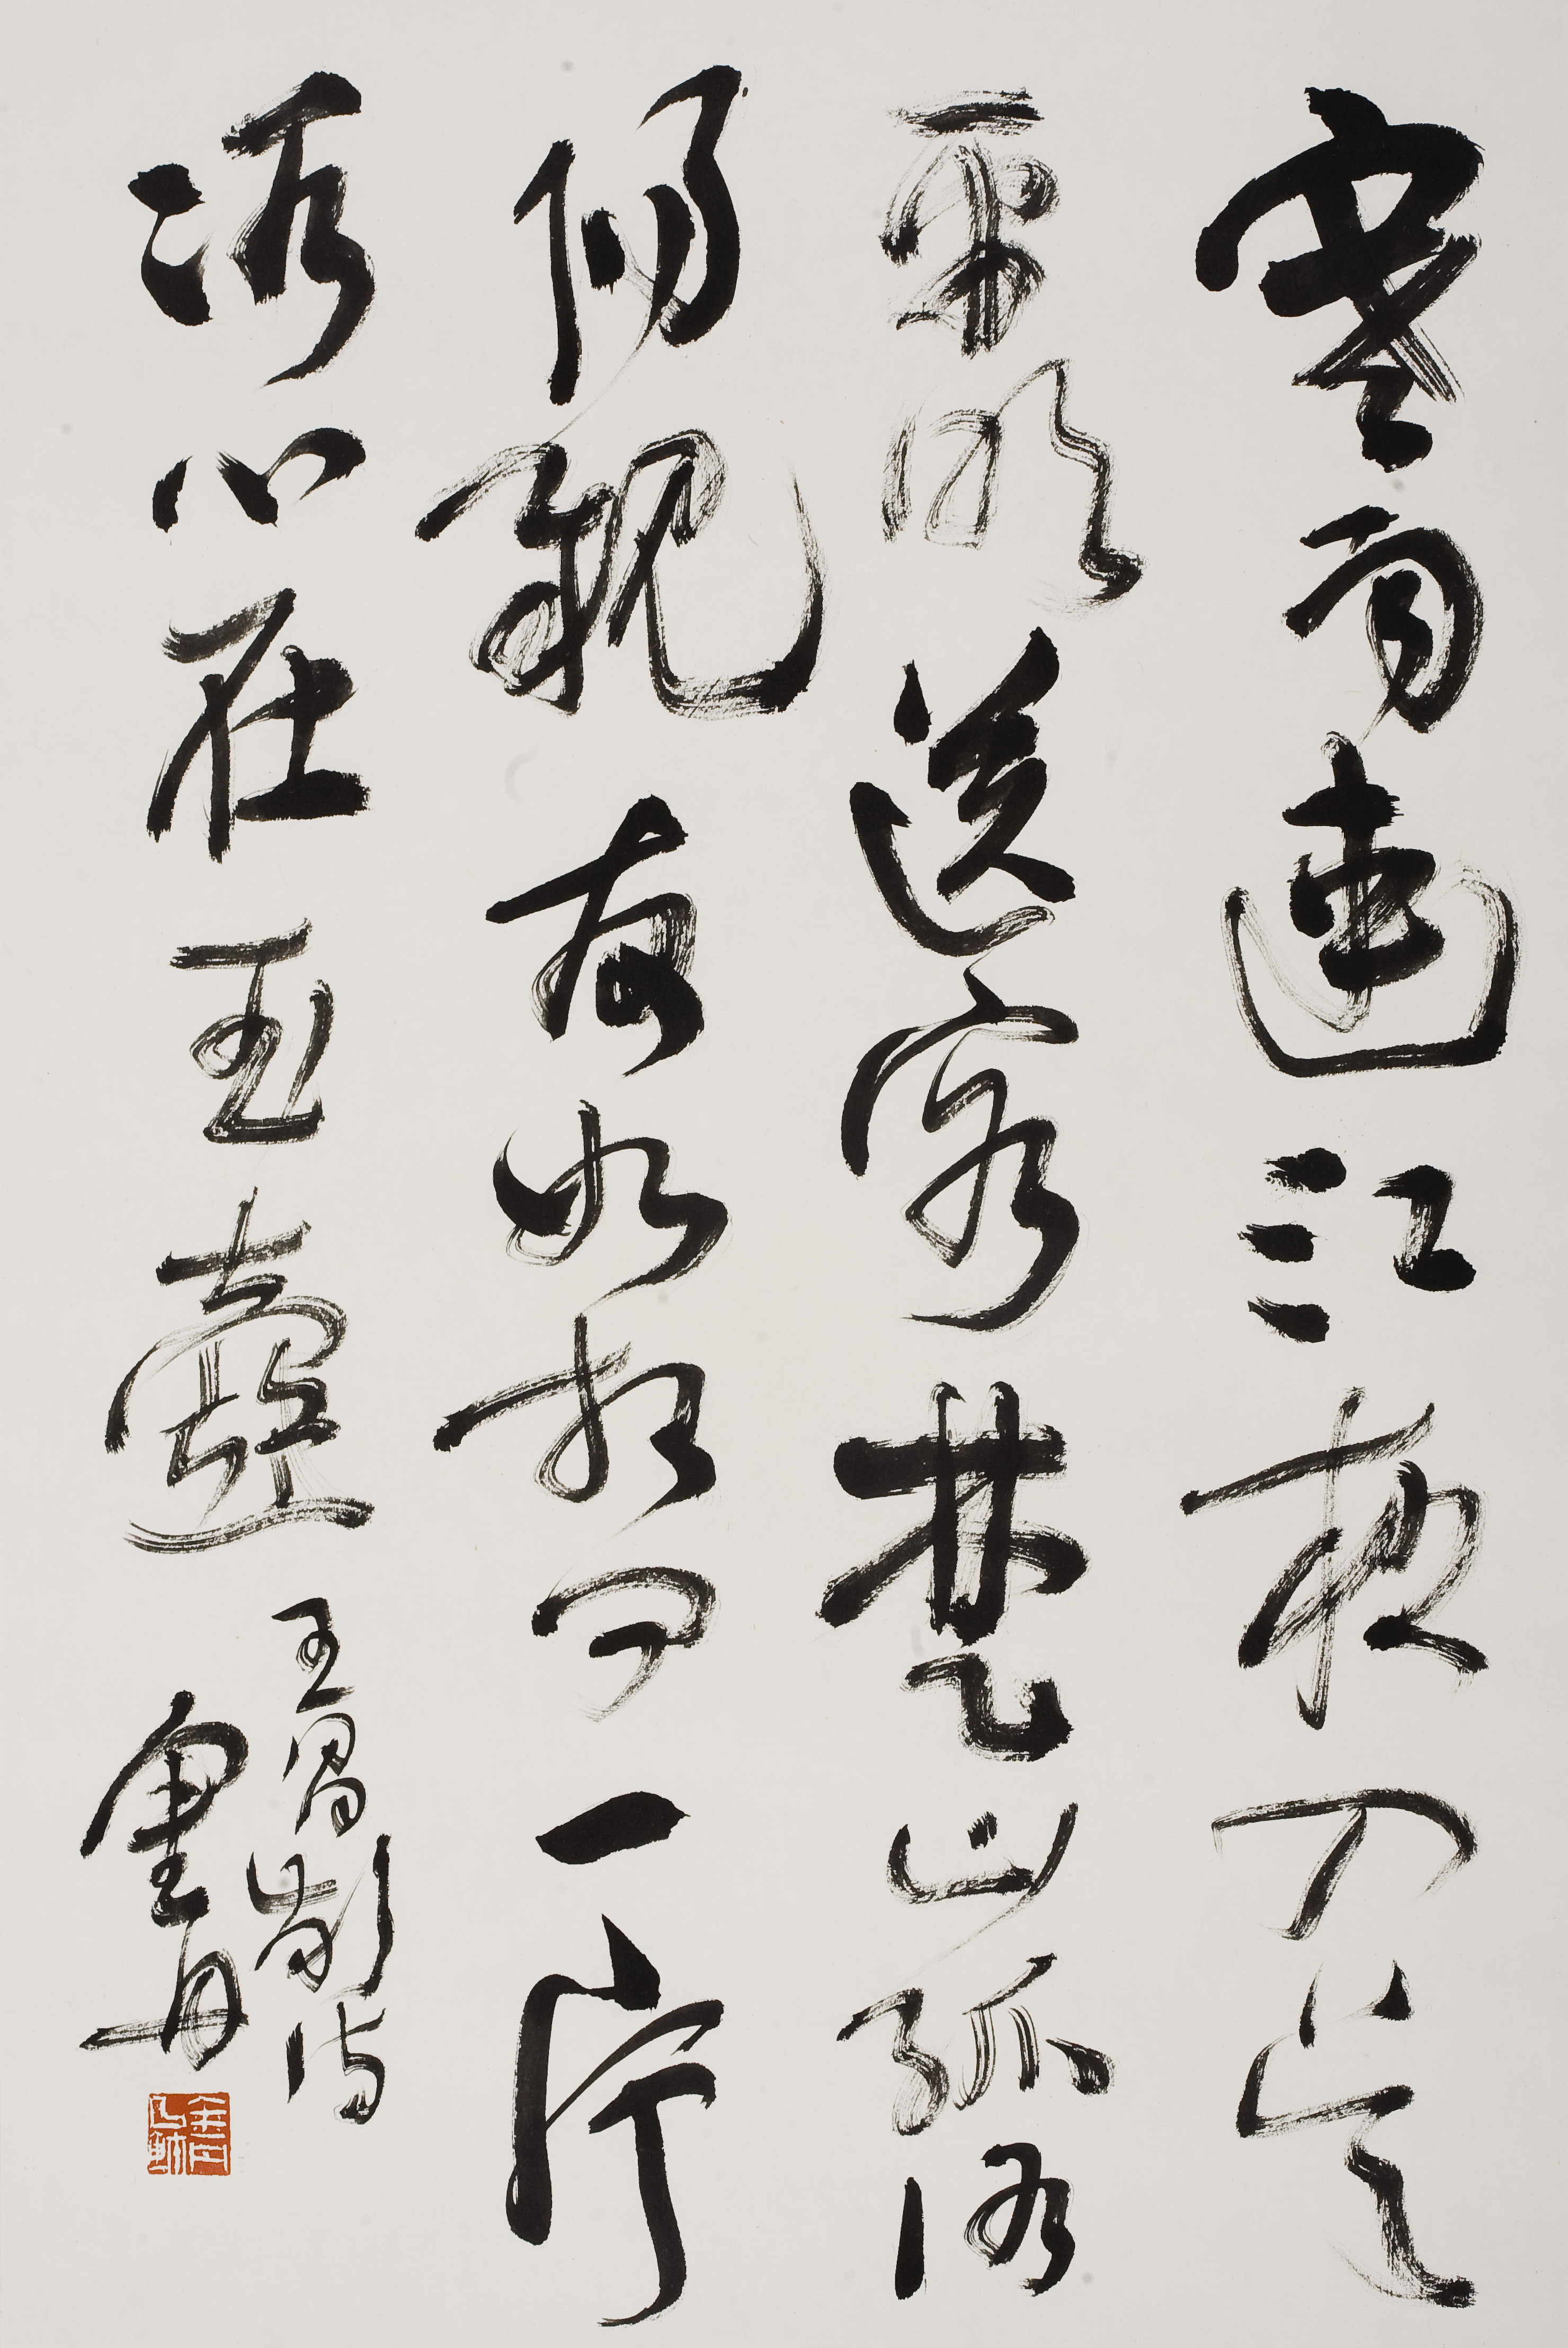 寒雨連江夜入吳
平明送客楚山孤洛
陽親友如相問一片
冰心在玉壺
王昌齡詩